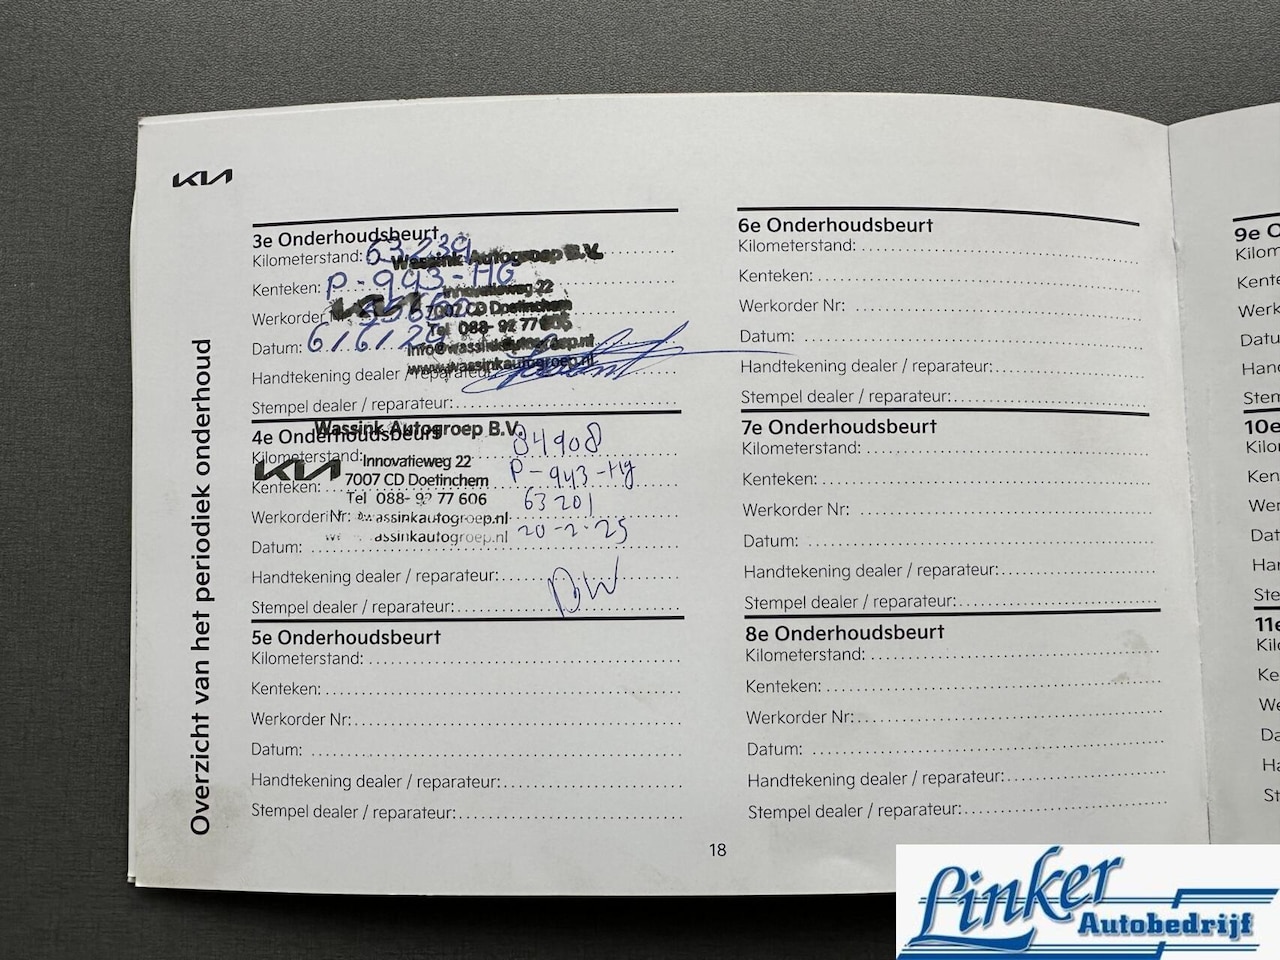 KIA
Overzicht van het periodiek onderhoud
3e Onderhoudsbeurt
Kilometerstand: 63239
Wassink Autogroep B.V.
Kenteken: P-943-HG
KIA
Innovatieweg 22
Werkorder Nr:
7007 CD Doetinchem
Tel 088- 92 77 606
Datum: 6/6/24
info@wassinkautogroep.nl
www.wassinkautogroep.nl
Handtekening dealer / reparateur:
Stempel dealer / reparateur:
4e Onderhoudsbeurt
Wassink Autogroep B.V.
Kilometerstand: 84908
KIA
Innovatieweg 22
Kenteken: P-943-Hg
7007 CD Doetinchem
Tel 088- 92 77 606
Werkorder Nr: 63201
wassinkautogroep.nl
Datum: 20-2-25
assinkautogroep.nl
Handtekening dealer / reparateur: DW
Stempel dealer / reparateur:
5e Onderhoudsbeurt
Kilometerstand:
Kenteken:
Werkorder Nr:
Datum:
Handtekening dealer / reparateur:
Stempel dealer / reparateur:
6e Onderhoudsbeurt
Kilometerstand:
Kenteken:
Werkorder Nr:
Datum:
Handtekening dealer / reparateur:
Stempel dealer / reparateur:
7e Onderhoudsbeurt
Kilometerstand:
Kenteken:
Werkorder Nr:
Datum:
Handtekening dealer / reparateur:
Stempel dealer / reparateur:
8e Onderhoudsbeurt
Kilometerstand:
Kenteken:
Werkorder Nr:
Datum:
Handtekening dealer / reparateur:
Stempel dealer / reparateur:
18
9e O
Kilom
Kente
Werk
Datu
Hand
Stem
10e
Kilo
Ken
Wer
Dat
Har
Ste
11e
Kil
Ke
We
Da
Ha
St
Linker
Autobedrijf